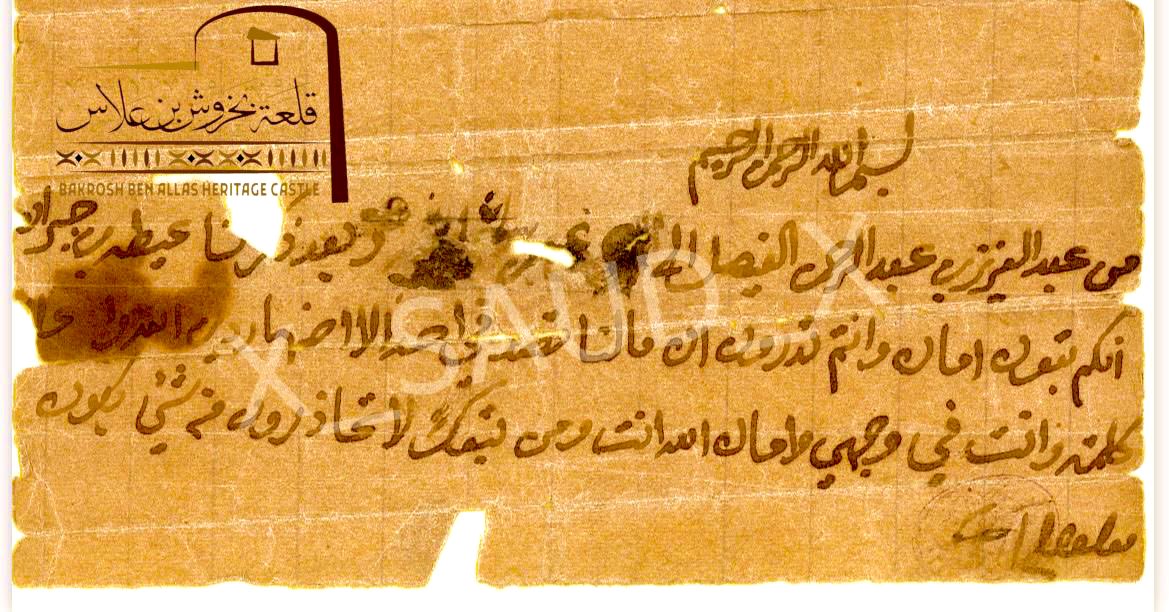 قلعة بخروش بن علاس
BAKROSH BEN ALLAS HERITAGE CASTLE
بسم الله الرحمن الرحيم
من عبد العزيز بن عبد الرحمن الفيصل الى وبعد ذكر لنا عيطه بن جبران
انكم تبون امان وانتم تدرون ان مالنا قصد في احد الا اظهار دين
كلمته وانت في وجهي وامان الله انت ومن تبعك لا تحاذرون من شي يكون
معلوم
X SAUD X